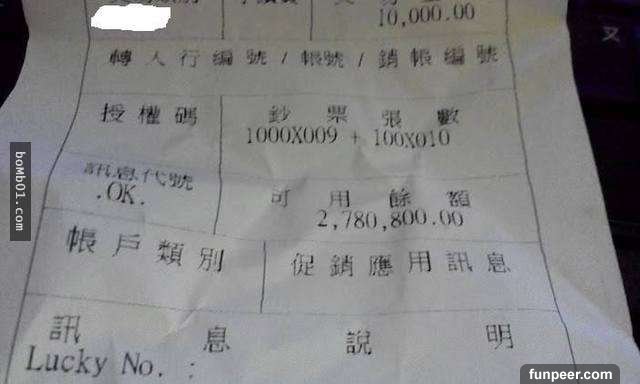 10,000.00
轉入行編號/帳號/銷帳編號
授權碼 鈔票張數
1000X009 + 100X010
訊息代號 可用餘額
.OK.
2,780,800.00
帳戶類別 促銷應用訊息
訊息說明
Lucky No. :
又
boMb01.com
funpeer.com